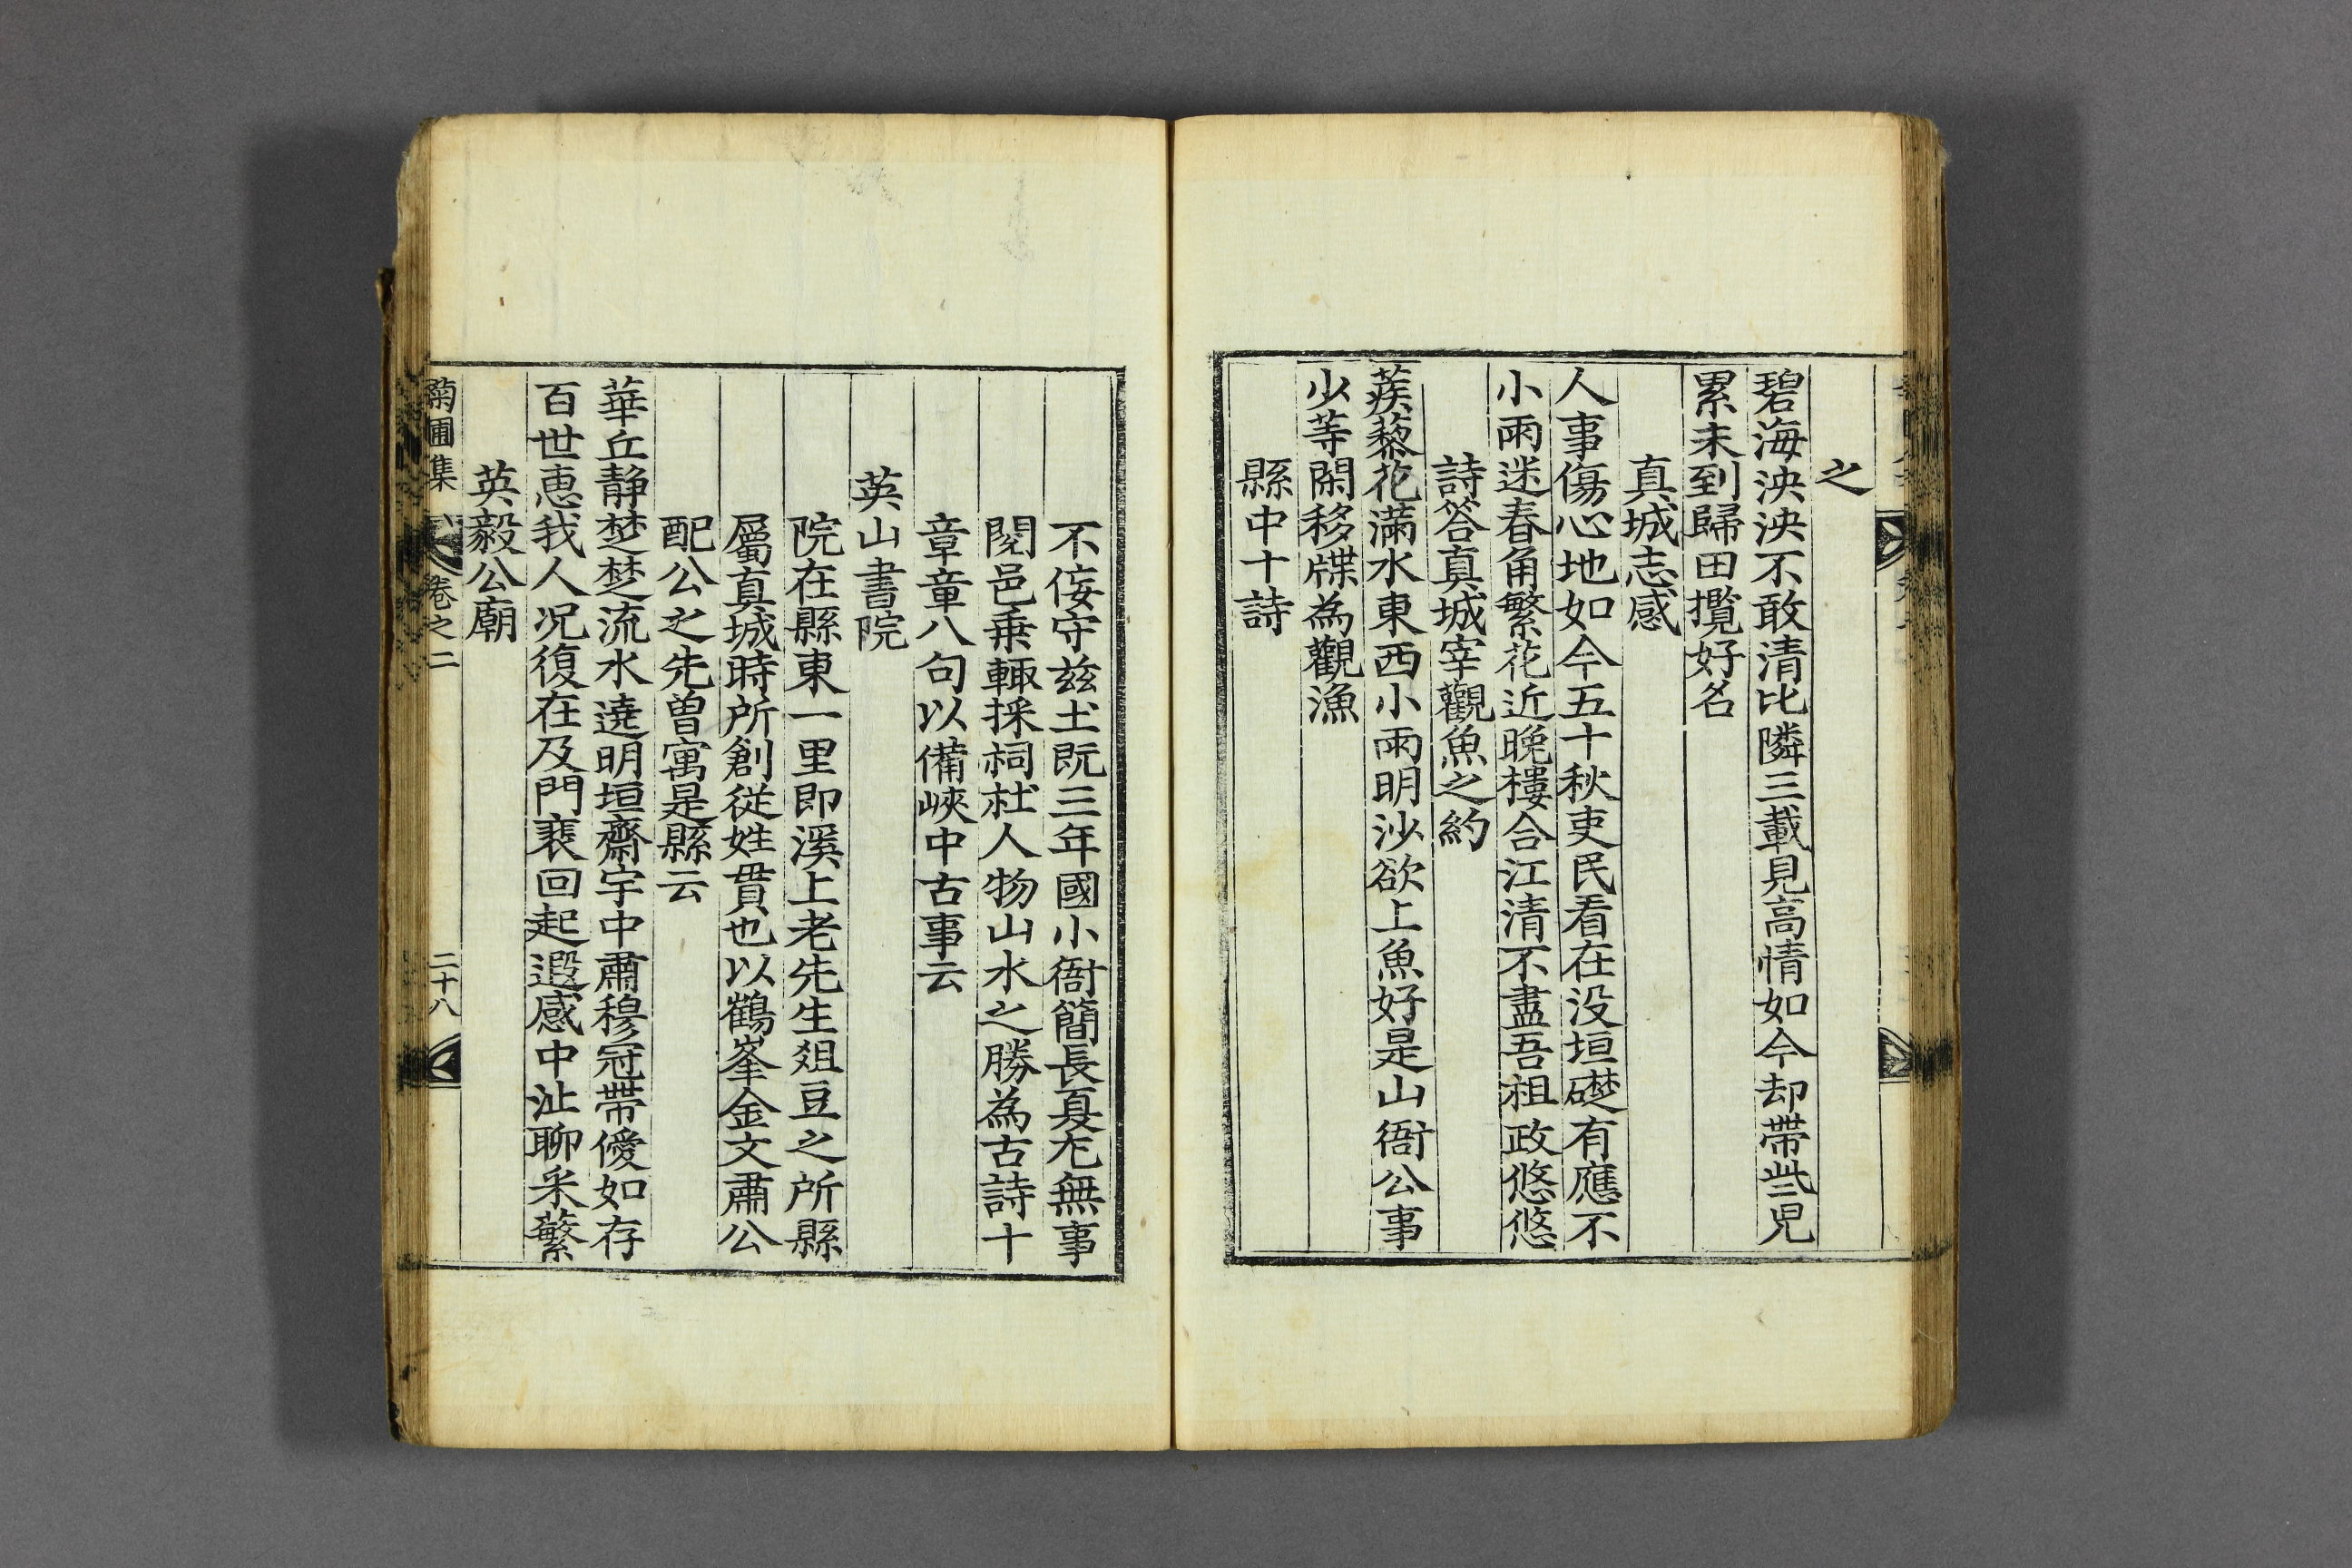 之
碧海泱泱不敢清比隣三載見高情如今却帶些兒
累未到歸田攬好名
真城志感
人事傷心地如今五十秋吏民看在没垣礎有應不
小雨迷春角繁花近晚樓合江清不盡吾祖政悠悠
詩答真城宰觀魚之約
蒺藜花滿水東西小雨明沙欲上魚好是山衙公事
少等閑移牒為觀漁
縣中十詩
不侫守玆土既三年國小衙簡長夏尤無事
閱邑乗輒採祠社人物山水之勝為古詩十
章章八句以備峽中古事云
英山書院
院在縣東一里即溪上老先生俎豆之所縣
屬真城時所創従姓貫也以鶴峯金文肅公
配公之先曽寓是縣云
華丘静楚楚流水遶明垣齋宇中肅穆冠帶僾如存
百世恵我人况復在及門裵回起遐感中沚聊采蘩
英毅公廟
菊圃集
卷之二
二十八